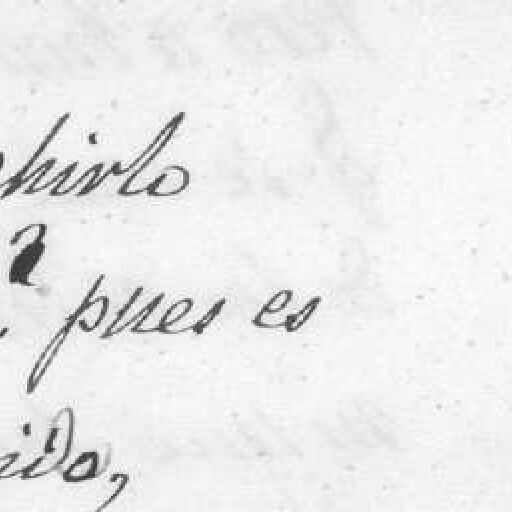 hirlo
pues es
ido,